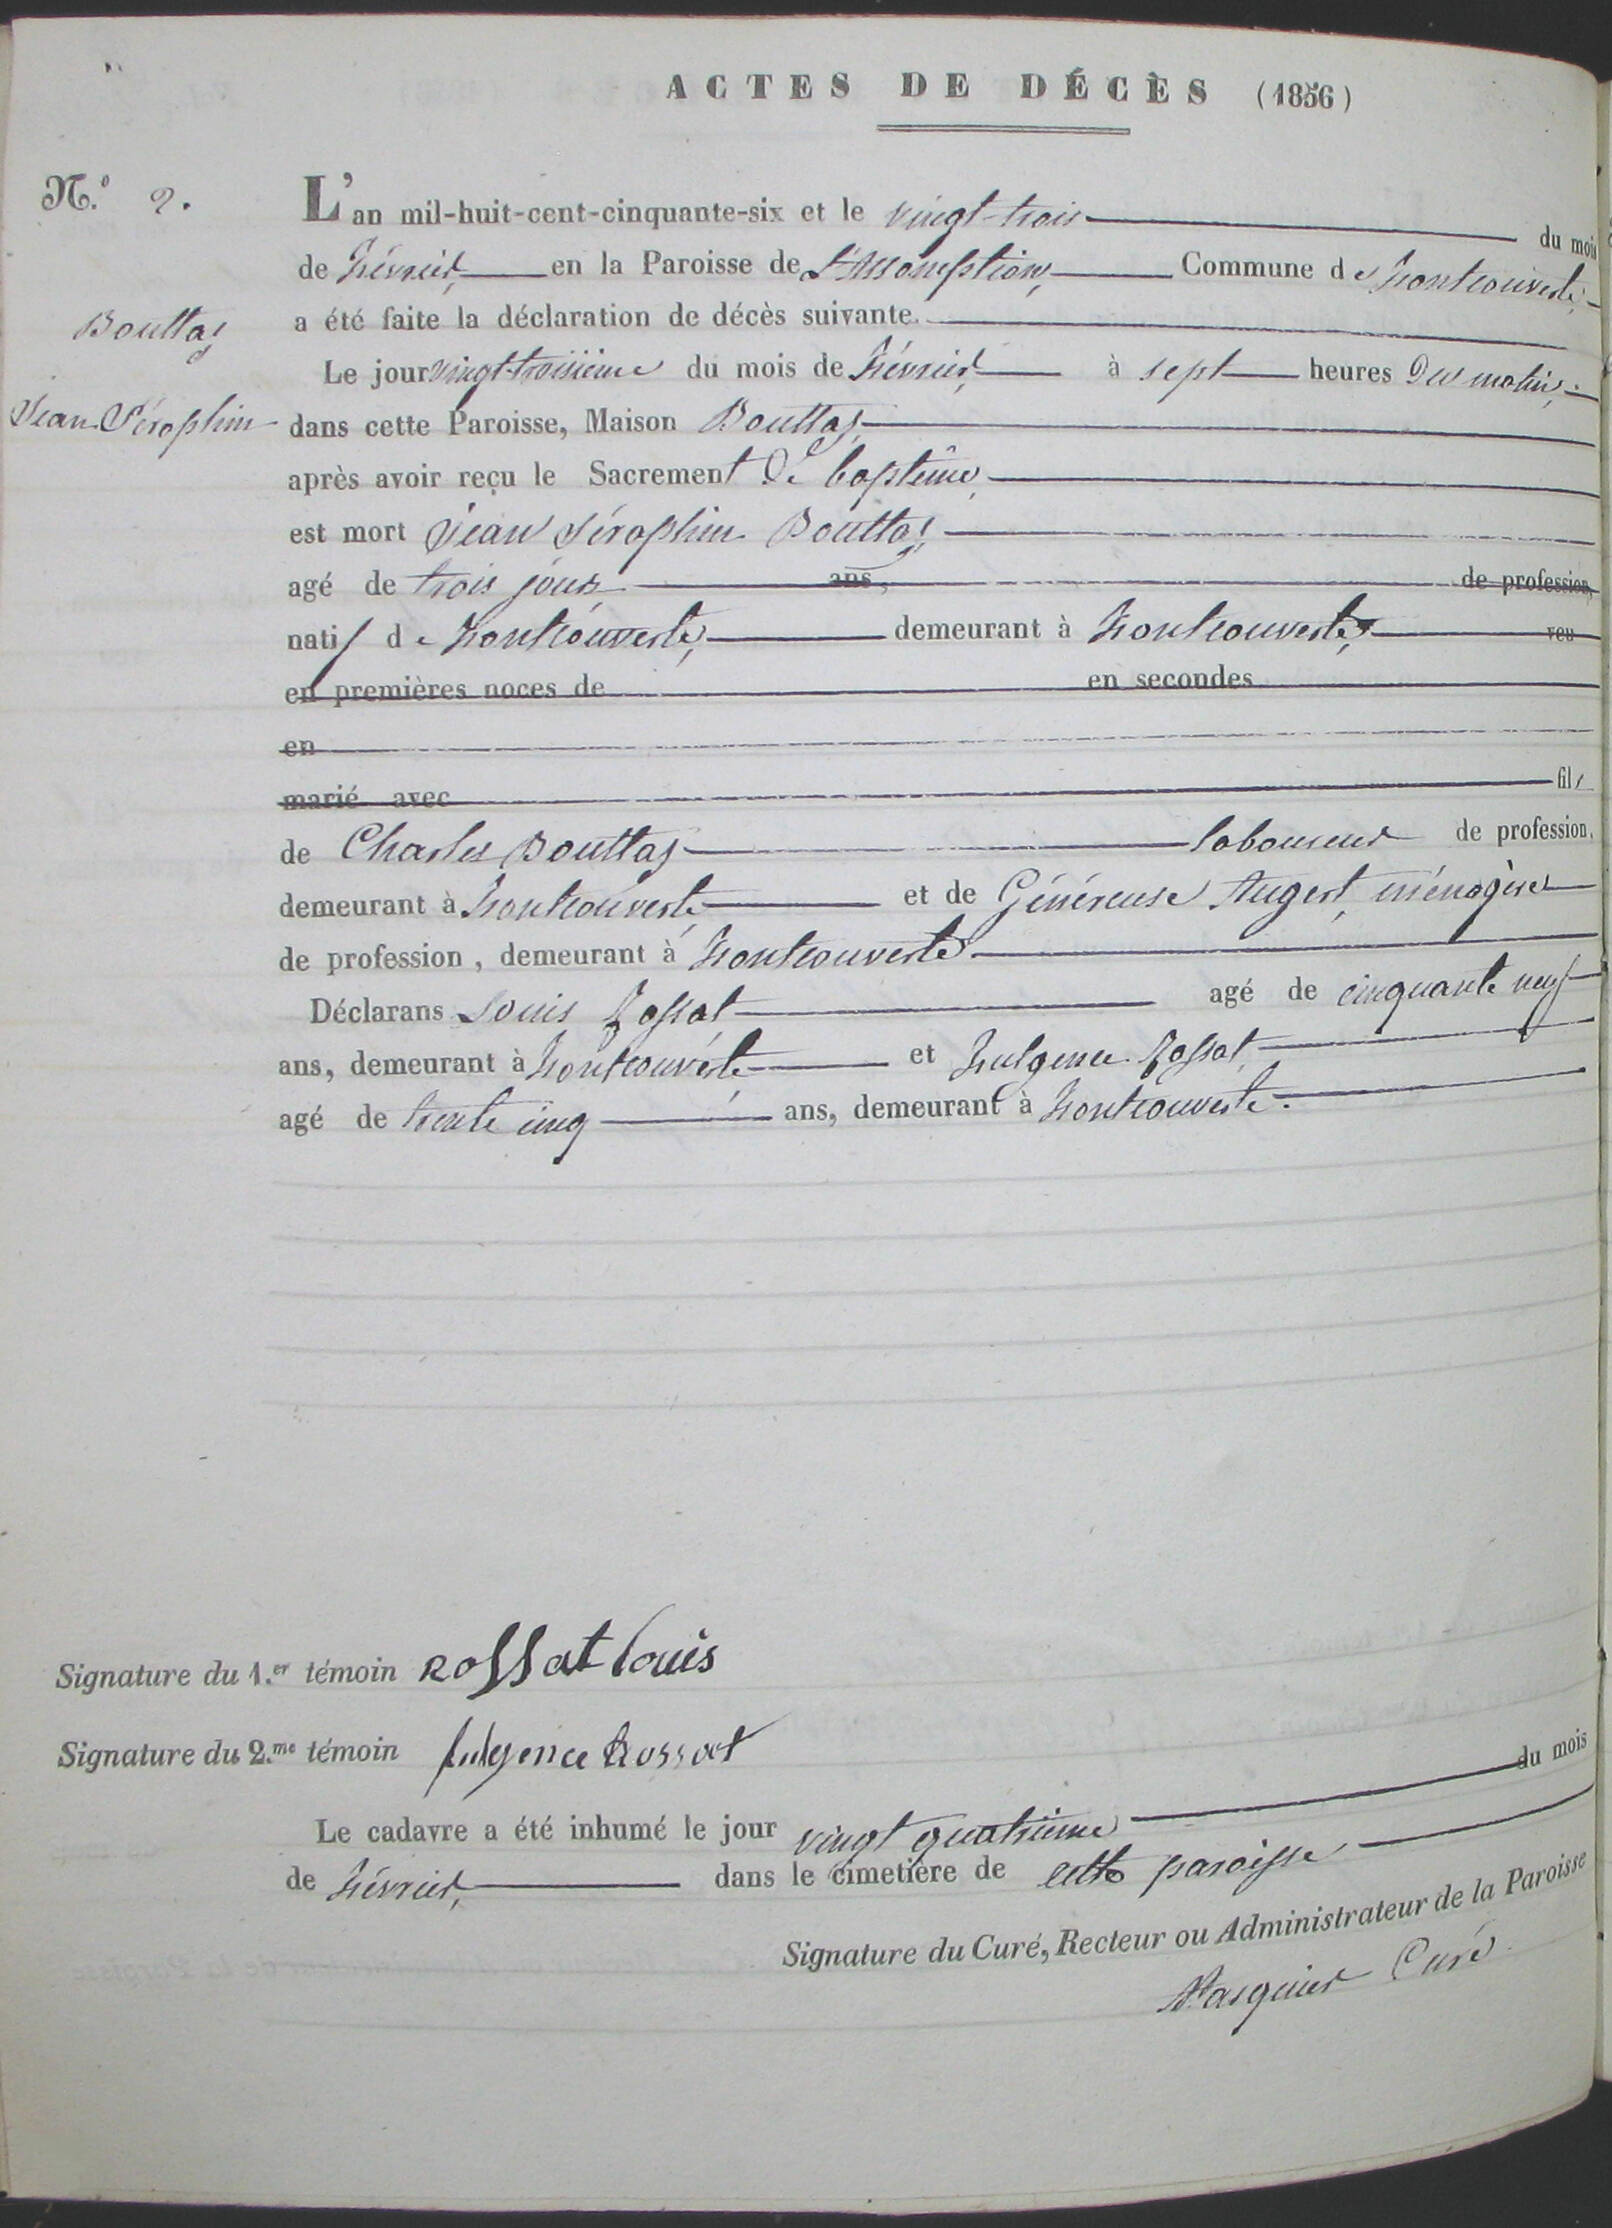 ACTES DE DÉCÈS (1856)
N.º 2.
L'an mil-huit-cent-cinquante-six et le vingt-trois du mois
de Février, en la Paroisse de L'Assomption, Commune de Fontcouverte,
Bouttaz
a été faite la déclaration de décès suivante.
Le jour vingt-troisième du mois de Février, à sept heures du matin,
Jean Séraphin
dans cette Paroisse, Maison Bouttaz,
après avoir reçu le Sacrement de baptême,
est mort Jean Séraphin Bouttaz,
agé de trois jours ans, de profession,
natif de Fontcouverte, demeurant à Fontcouverte, veu
en premières noces de en secondes
en
marié avec fils
de Charles Bouttaz laboureur de profession,
demeurant à Fontcouverte et de Généreuse Augert, ménagère
de profession, demeurant à Fontcouverte
Déclarans Louis Rossat agé de cinquante neuf
ans, demeurant à Fontcouverte et Fulgence Rossat,
agé de trente cinq ans, demeurant à Fontcouverte.
Signature du 1.er témoin Rossat Louis
Signature du 2.me témoin fulgence Rossat
Le cadavre a été inhumé le jour vingt quatrième du mois
de Février, dans le cimetière de cette paroisse
Signature du Curé, Recteur ou Administrateur de la Paroisse
Pasquier Curé